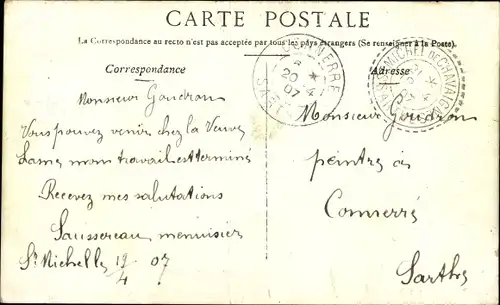 CARTE POSTALE
La Correspondance au recto n'est pas acceptée par tous les pays étrangers (Se renseigner à la Poste).
Correspondance
Adresse
CONNERRE
20 4
07
SARTHE
ST MICHEL DE CHAVAIGNES
Monsieur Goudron
Vous pouvez venir chez la Veuve
Lame mon travail est terminé
Recevez mes salutations
Saussereau menuisier
St Michelle 19/4 07
Monsieur Goudron
peintre à
Connerré
Sarthe